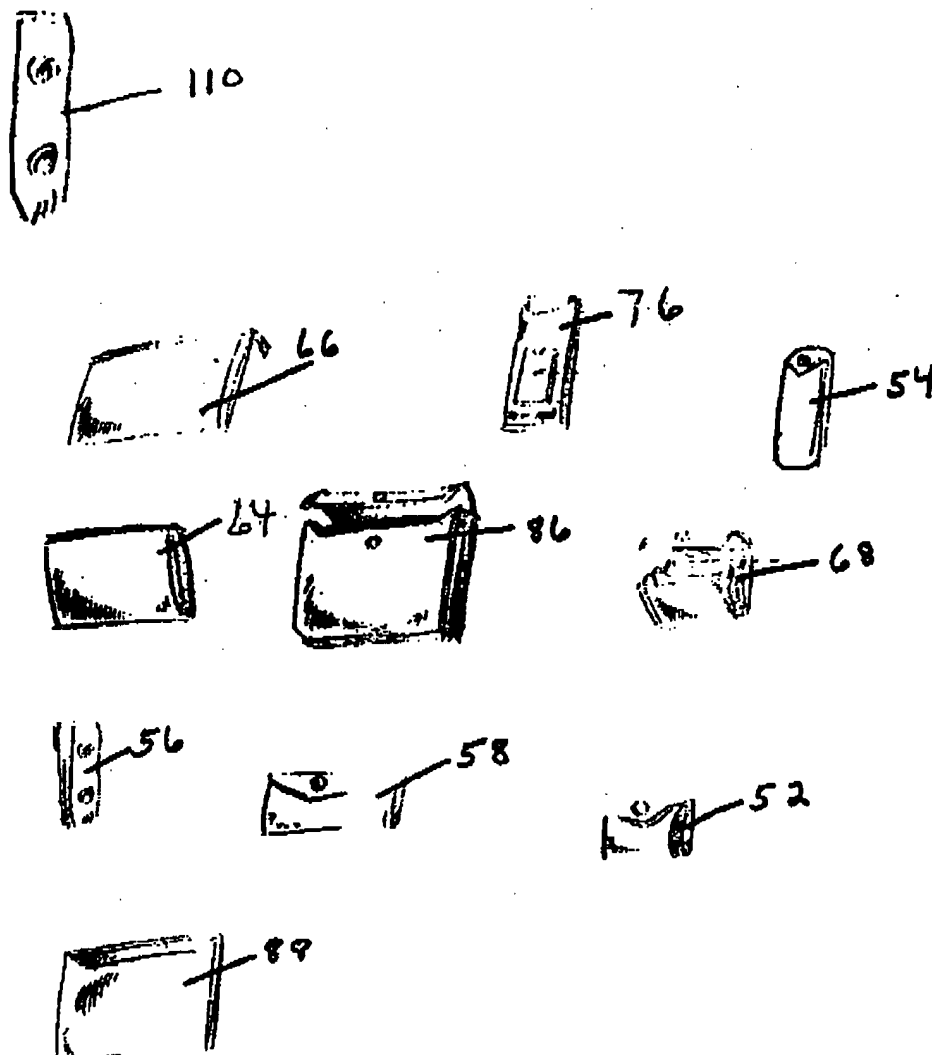 110
66
76
54
64
86
68
56
58
52
88